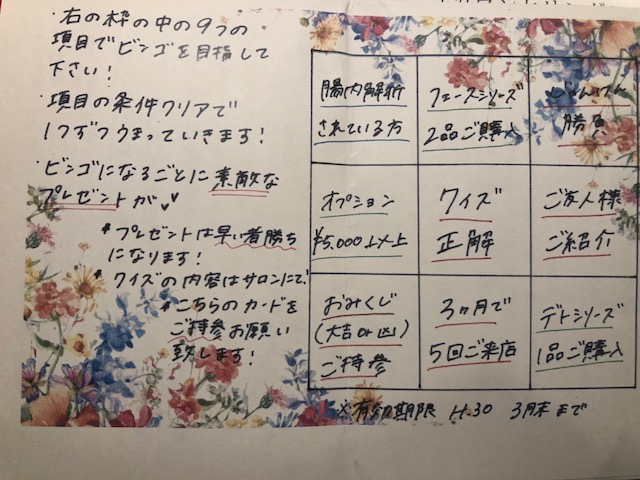 ・右の枠の中の9つの
項目でビンゴを目指して
下さい!
・項目の条件クリアで
1つずつうまっていきます!
・ビンゴになるごとに素敵な
プレゼントが
*プレゼントは早い者勝ち
になります!
*クイズの内容はサロンにて
*こちらのカードを
ご持参お願い
致します!
腸内解析
されている方
フェースシリーズ
2品ご購入
じゃんけん
勝負
オプション
¥5,000以上
クイズ
正解
ご友人様
ご紹介
おみくじ
(大吉or凶)
ご持参
3ヶ月で
5回ご来店
デトシリーズ
1品ご購入
※有効期限 H.30 3月末まで